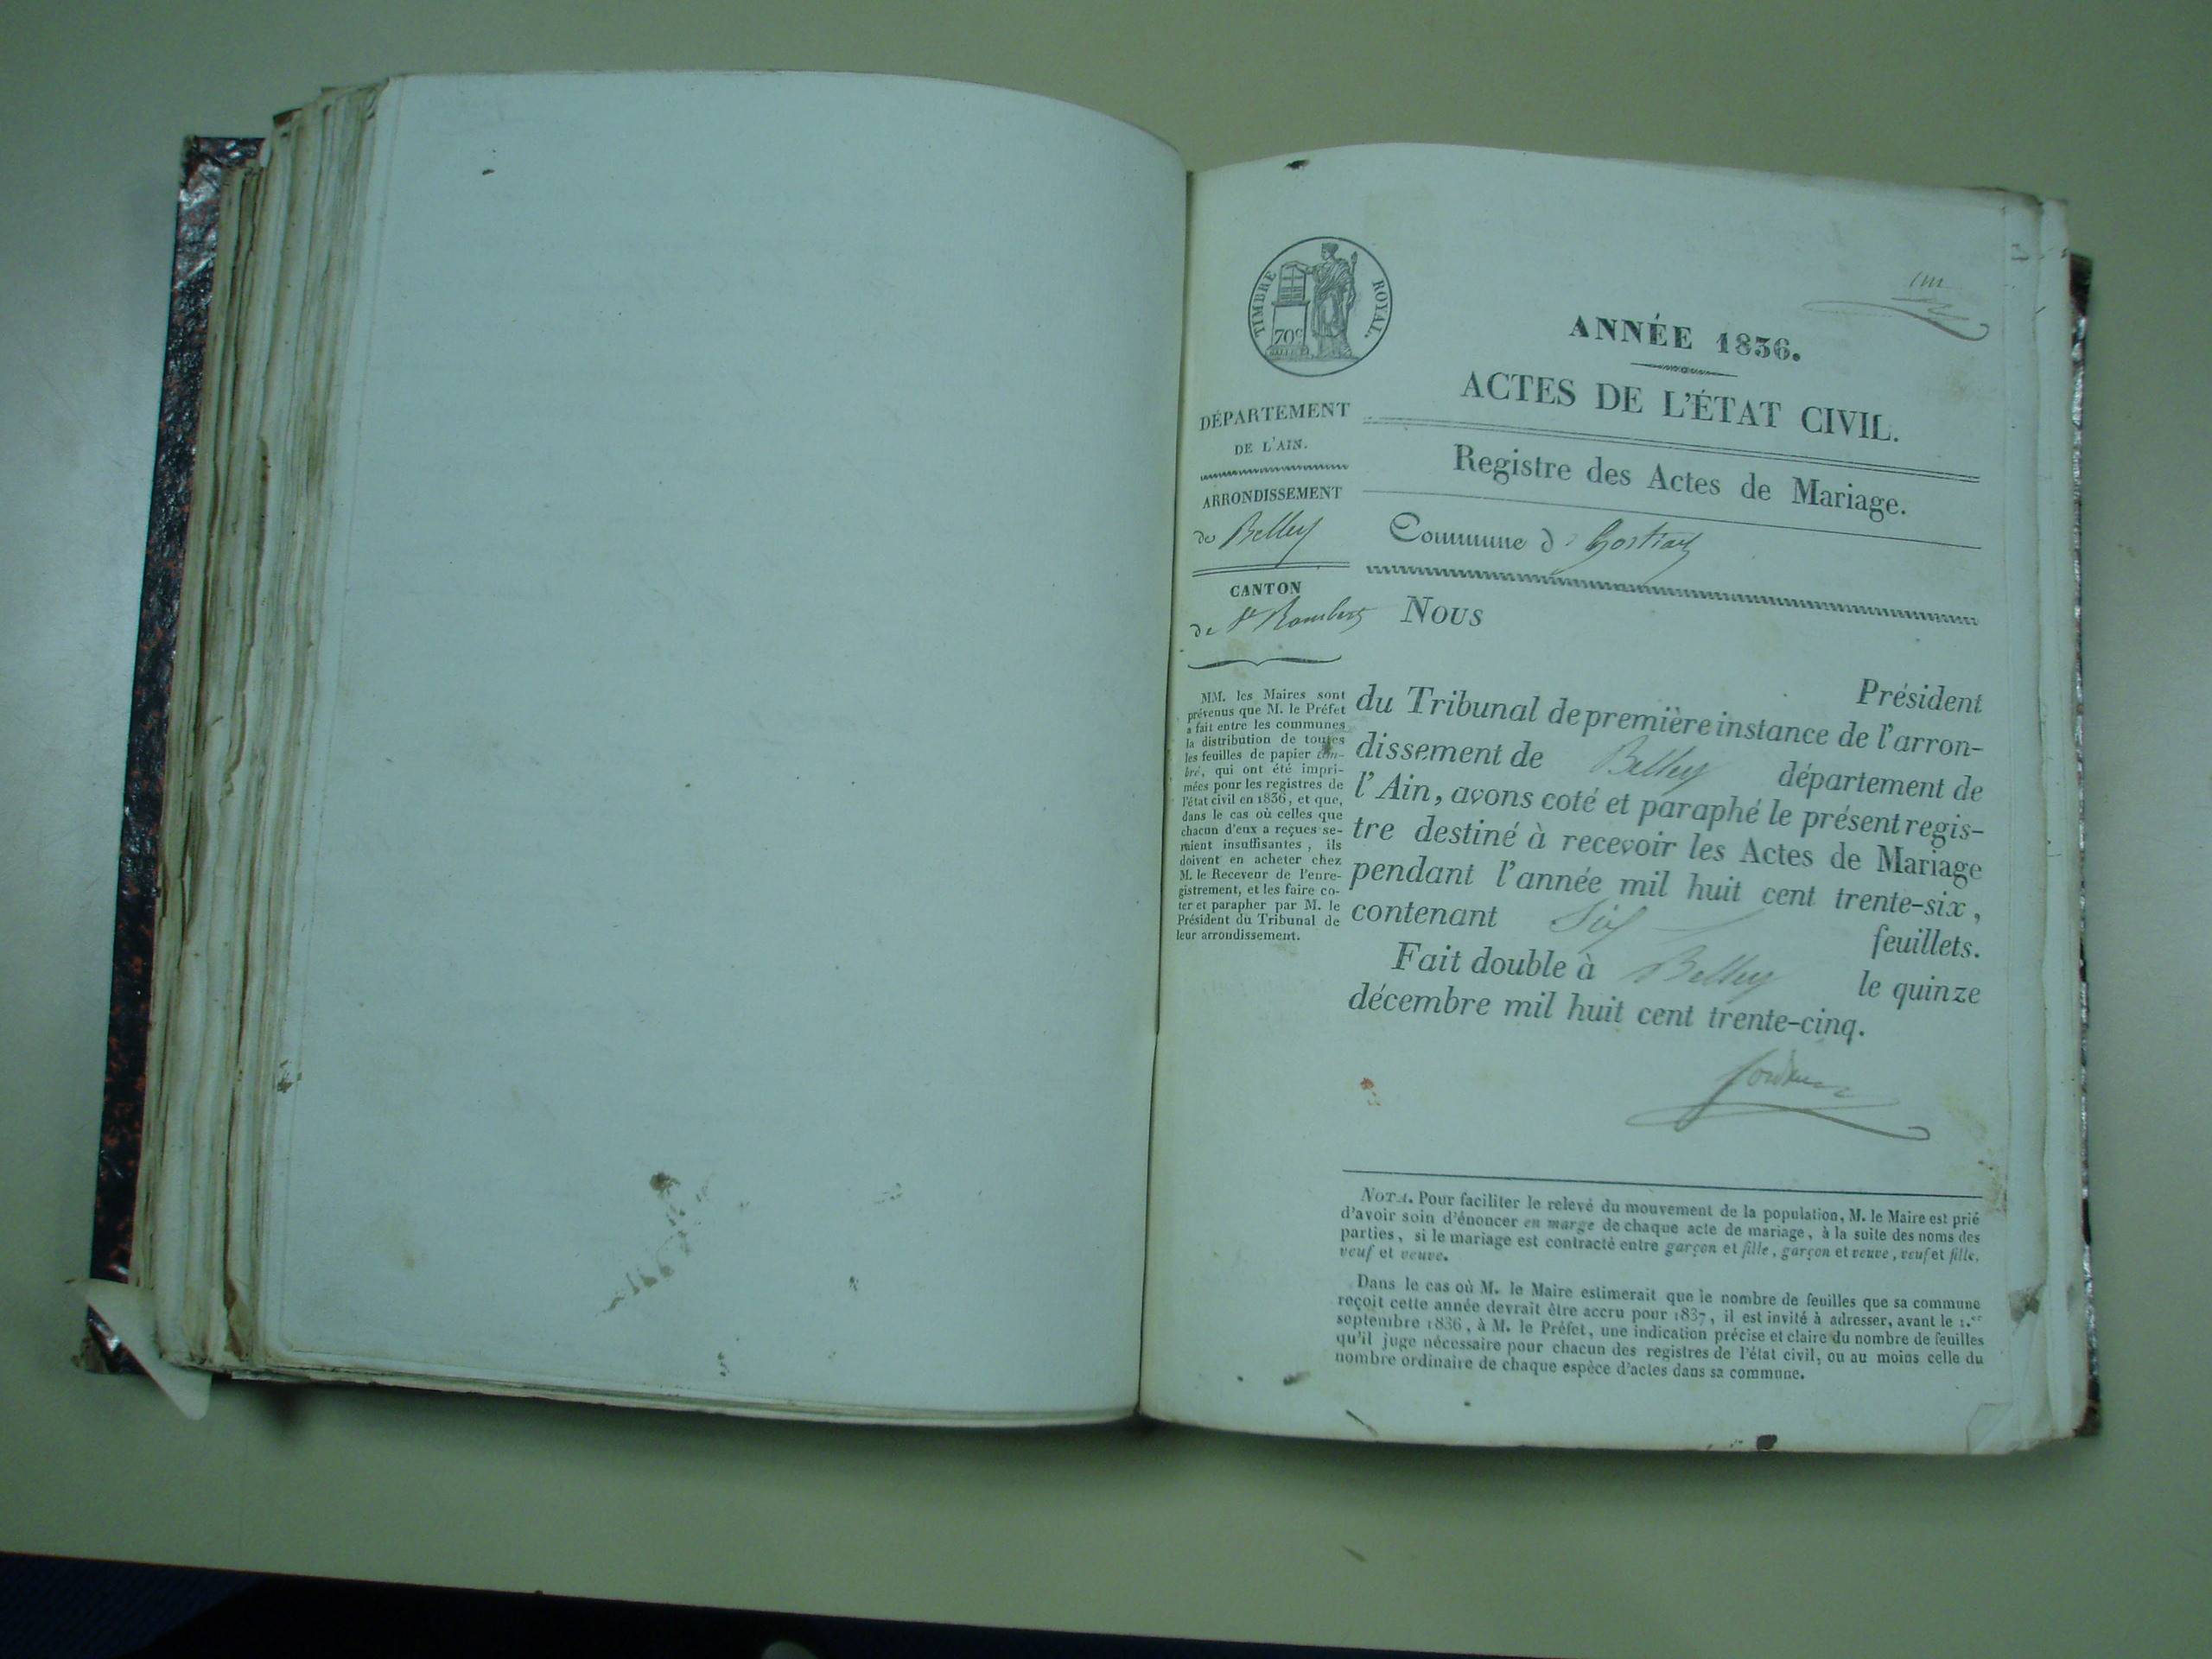 TIMBRE ROYAL.
70c
ANNÉE 1836.
ACTES DE L'ÉTAT CIVIL.
Registre des Actes de Mariage.
Commune d
DÉPARTEMENT
DE L'AIN.
ARRONDISSEMENT
de Belley
CANTON
de St Rambert
MM. les Maires sont
prévenus que M. le Préfet
a fait entre les communes
la distribution de toutes
les feuilles de papier tim-
bré, qui ont été impri-
mées pour les registres de
l'état civil en 1836, et que,
dans le cas où celles que
chacun d'eux a reçues se-
raient insuffisantes, ils
doivent en acheter chez
M. le Receveur de l'enre-
gistrement, et les faire co-
ter et parapher par M. le
Président du Tribunal de
leur arrondissement.
Nous
Président
du Tribunal de première instance de l'arron-
dissement de Belley département de
l'Ain, avons coté et paraphé le présent regis-
tre destiné à recevoir les Actes de Mariage
pendant l'année mil huit cent trente-six,
contenant Six feuillets.
Fait double à Belley le quinze
décembre mil huit cent trente-cinq.
NOTA. Pour faciliter le relevé du mouvement de la population, M. le Maire est prié
d'avoir soin d'énoncer en marge de chaque acte de mariage, à la suite des noms des
parties, si le mariage est contracté entre garçon et fille, garçon et veuve, veuf et fille,
veuf et veuve.
Dans le cas où M. le Maire estimerait que le nombre de feuilles que sa commune
reçoit cette année devrait être accru pour 1837, il est invité à adresser, avant le 1.er
septembre 1836, à M. le Préfet, une indication précise et claire du nombre de feuilles
qu'il juge nécessaire pour chacun des registres de l'état civil, ou au moins celle du
nombre ordinaire de chaque espèce d'actes dans sa commune.